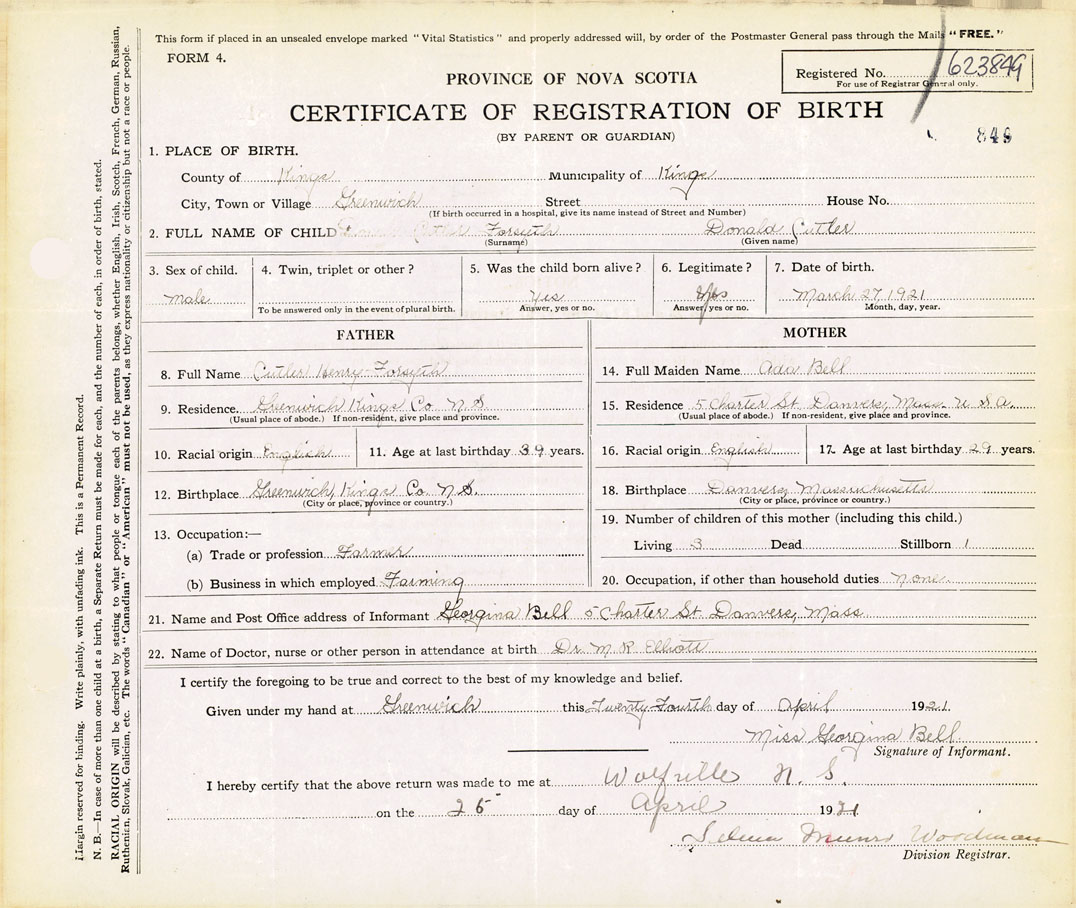 This form if placed in an unsealed envelope marked "Vital Statistics" and properly addressed will, by order of the Postmaster General pass through the Mails "FREE."
FORM 4.
Registered No. 623849
For use of Registrar General only.
PROVINCE OF NOVA SCOTIA
CERTIFICATE OF REGISTRATION OF BIRTH
(BY PARENT OR GUARDIAN)
846
1. PLACE OF BIRTH.
County of Kings Municipality of Kings
City, Town or Village Greenwich Street House No.
(If birth occurred in a hospital, give its name instead of Street and Number)
2. FULL NAME OF CHILD Forsyth Donald Cutler
(Surname) (Given name)
3. Sex of child. 4. Twin, triplet or other? 5. Was the child born alive? 6. Legitimate? 7. Date of birth.
Male Yes Yes March 27 1921
To be answered only in the event of plural birth. Answer, yes or no. Answer, yes or no. Month, day, year.
FATHER
8. Full Name Cutler Henry Forsyth
9. Residence. Greenwich Kings Co. N.S.
(Usual place of abode.) If non-resident, give place and province.
10. Racial origin English 11. Age at last birthday 39 years.
12. Birthplace Greenwich, Kings Co. N.S.
(City or place, province or country.)
13. Occupation:—
(a) Trade or profession Farmer
(b) Business in which employed Farming
MOTHER
14. Full Maiden Name Ada Bell
15. Residence 5 Charter St. Danvers, Mass. U.S.A.
(Usual place of abode.) If non-resident, give place and province.
16. Racial origin English 17. Age at last birthday 29 years.
18. Birthplace Danvers, Massachusetts
(City or place, province or country.)
19. Number of children of this mother (including this child.)
Living 3 Dead Stillborn 1
20. Occupation, if other than household duties None
21. Name and Post Office address of Informant Georgina Bell 5 Charter St Danvers, Mass
22. Name of Doctor, nurse or other person in attendance at birth Dr. M. R. Elliott
I certify the foregoing to be true and correct to the best of my knowledge and belief.
Given under my hand at Greenwich this Twenty Fourth day of April 1921
Miss Georgina Bell
Signature of Informant.
I hereby certify that the above return was made to me at Wolfville N. S.
on the 25 day of April 1921
Selina Munro Woodman
Division Registrar.
Margin reserved for binding. Write plainly, with unfading ink. This is a Permanent Record.
N. B.—In case of more than one child at a birth, a Separate Return must be made for each, and the number of each, in order of birth, stated.
RACIAL ORIGIN will be described by stating to what people or tongue each of the parents belongs, whether English, Irish, Scotch, French, German, Russian,
Ruthenian, Slovak, Galician, etc. The words "Canadian" or "American" must not be used, as they express nationality or citizenship but not a race or people.